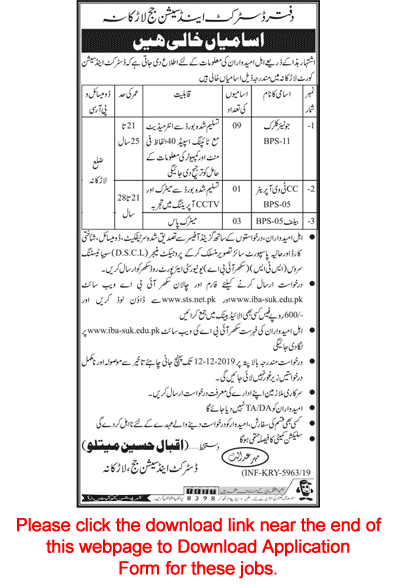 دفتر ڈسٹرکٹ اینڈ سیشن جج لاڑکانہ
اسامیاں خالی ہیں
اشتہار ہذا کے ذریعے اہل امیدواران کی معلومات کے لئے اطلاع دی جاتی ہے کہ ڈسٹرکٹ اینڈ سیشن
کورٹ لاڑکانہ میں مندرجہ ذیل اسامیاں خالی ہیں
نمبر شمار اسامی کا نام اسامیوں کی تعداد قابلیت عمر کی حد ڈومیسائل و پی آر سی
1- جونیئر کلرک BPS-11 09 تسلیم شدہ بورڈ سے انٹرمیڈیٹ مع ٹائپنگ اسپیڈ 40 الفاظ فی منٹ اور کمپیوٹر کی معلومات کے حامل کو ترجیح دی جائیگی 21 تا 25 سال ضلع لاڑکانہ
2- CC ٹی وی آپریٹر BPS-05 01 تسلیم شدہ بورڈ سے میٹرک اور CCTV آپریٹنگ میں تجربہ 21 تا 28 سال
3- بیلف BPS-05 03 میٹرک پاس
اہل امیدواران، درخواستوں کے ساتھ گزیٹڈ آفیسر سے تصدیق شدہ سرٹیفکیٹ، ڈومیسائل، شناختی
کارڈ اور حالیہ پاسپورٹ سائز تصویر منسلک کر کے پروجیکٹ منیجر (D.S.C.L) سیبا ٹیسٹنگ
سروس (ایس ٹی ایس) سکھر آئی بی اے یونیورسٹی ایئرپورٹ روڈ سکھر کو ارسال کریں۔
درخواست ارسال کرنے کیلئے فارم اور چالان سکھر آئی بی اے ویب سائٹ
www.iba-suk.edu.pk اور www.sts.net.pk سے ڈاؤن لوڈ کریں اور
600/- روپے فیس کسی بھی الائیڈ بینک میں جمع کرائیں
اہل امیدواران کی فہرست سکھر آئی بی اے کی ویب سائٹ www.iba-suk.edu.pk پر
لگا دی جائیگی
درخواست مندرجہ بالا پتہ پر 12-12-2019 تک پہنچ جانی چاہئے تاخیر سے موصولہ اور نامکمل
درخواستیں زیر غور نہیں لائی جائیں گی۔
سرکاری ملازمین اپنے ادارے کی معرفت درخواست ارسال کریں۔
امیدواران کو TA/DA نہیں دیا جائے گا
کسی بھی قسم کی سفارش، امیدوار کو درخواست دینے والے عہدے کے لئے نااہل کر دے گی
سلیکشن کمیٹی کا فیصلہ حتمی ہوگا
دستخط
اقبال حسین میتلو
مہر عدالت
ڈسٹرکٹ اینڈ سیشن جج، لاڑکانہ
(INF-KRY-5963/19
8398
Please click the download link near the end of
this webpage to Download Application
Form for these jobs.